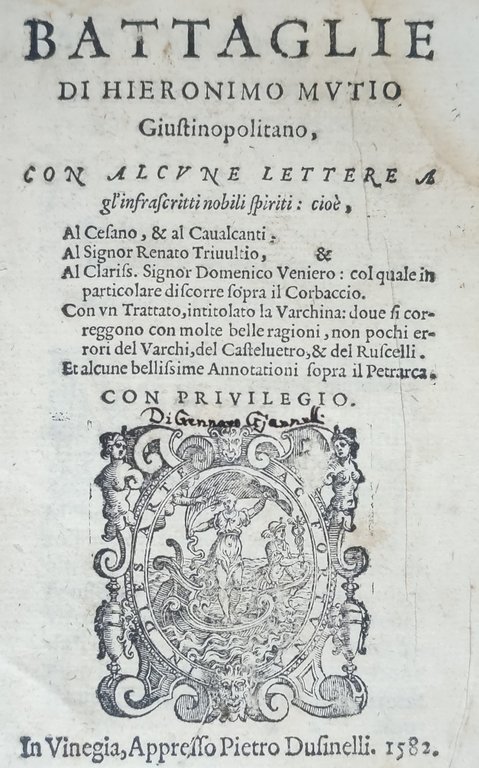 BATTAGLIE
DI HIERONIMO MVTIO
Giuſtinopolitano,
CON ALCVNE LETTERE A
gl'infraſcritti nobili ſpiriti: cioè,
Al Ceſano, & al Caualcanti.
Al Signor Renato Triuultio, &
Al Clariſs. Signor Domenico Veniero: col quale in
particolare diſcorre ſopra il Corbaccio.
Con vn Trattato, intitolato la Varchina: doue ſi cor-
reggono con molte belle ragioni, non pochi er-
rori del Varchi, del Caſteluetro, & del Ruſcelli.
Et alcune belliſsime Annotationi ſopra il Petrarca.
CON PRIVILEGIO.
Di Gennaro Giannelli
AC FORTVNA
In Vinegia, Appreſſo Pietro Duſinelli. 1582.